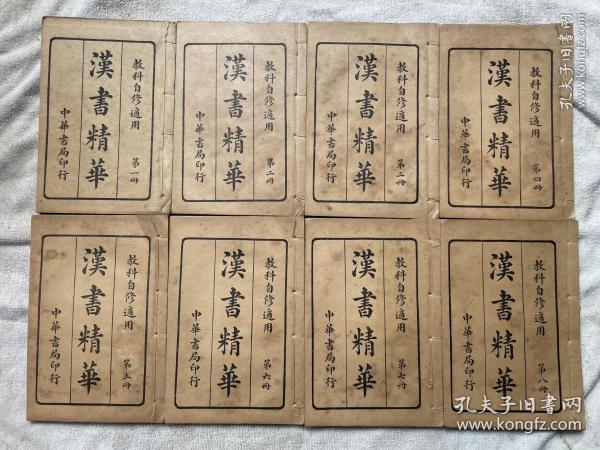 教科自修適用
漢書精華
第一冊
中華書局印行
教科自修適用
漢書精華
第二冊
中華書局印行
教科自修適用
漢書精華
第三冊
中華書局印行
教科自修適用
漢書精華
第四冊
中華書局印行
教科自修適用
漢書精華
第五冊
中華書局印行
教科自修適用
漢書精華
第六冊
中華書局印行
教科自修適用
漢書精華
第七冊
中華書局印行
教科自修適用
漢書精華
第八冊
中華書局印行
孔夫子旧书网
孔夫子旧书网
www.kongfz.com